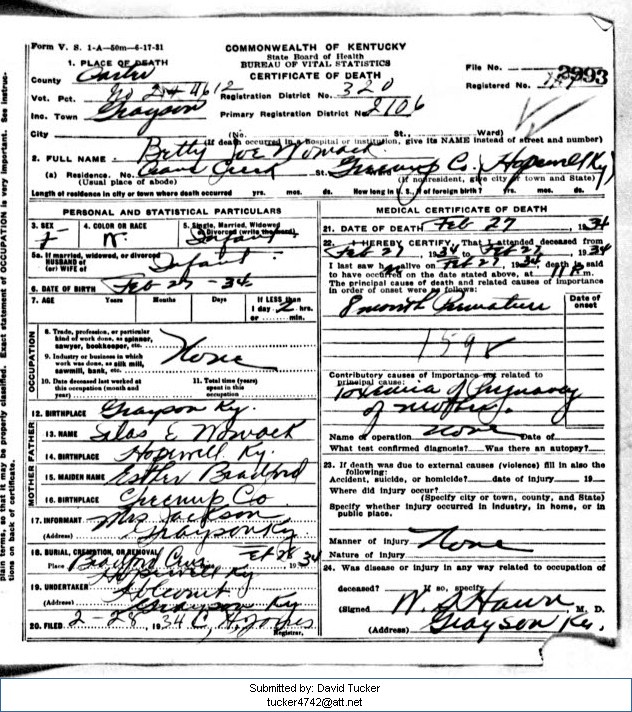 Form V. S. 1-A—50m—6-17-31
COMMONWEALTH OF KENTUCKY
State Board of Health
BUREAU OF VITAL STATISTICS
CERTIFICATE OF DEATH
1. PLACE OF DEATH
County Carter
File No. 2993
Registered No.
Vot. Pct. No 2 + 4612 Registration District No. 320
Inc. Town Grayson Primary Registration District No. 2106
City (No. St., Ward)
(If death occurred in a hospital or institution, give its NAME instead of street and number)
2. FULL NAME Betty Joe Womack
(a) Residence. No. Cane Creek St. Greenup Co. Hopewell Ky
(Usual place of abode) (If nonresident, give city or town and State)
Length of residence in city or town where death occurred yrs. mos. ds. How long in U. S., if of foreign birth? yrs. mos. ds.
PERSONAL AND STATISTICAL PARTICULARS
3. SEX F
4. COLOR OR RACE W.
5. Single, Married, Widowed
Divorced (write the word) Infant
5a. If married, widowed, or divorced
HUSBAND of
(or) WIFE of Infant
6. DATE OF BIRTH Feb 27 - 34
7. AGE Years Months Days If LESS than
1 day 2 hrs.
or min.
OCCUPATION
8. Trade, profession, or particular
kind of work done, as spinner,
sawyer, bookkeeper, etc.
None
9. Industry or business in which
work was done, as silk mill,
sawmill, bank, etc.
10. Date deceased last worked at
this occupation (month and
year)
11. Total time (years)
spent in this
occupation
12. BIRTHPLACE Grayson Ky.
MOTHER FATHER
13. NAME Silas E Womack
14. BIRTHPLACE Hopewell Ky.
15. MAIDEN NAME Esther Bradford
16. BIRTHPLACE Greenup Co
17. INFORMANT Mrs Jackson
(Address) Grayson Ky
18. BURIAL, CREMATION, OR REMOVAL
Place Bradford Feb 28 1934
Hopewell Ky
19. UNDERTAKER
(Address) Grayson Ky
20. FILED 2-28, 1934 Registrar.
MEDICAL CERTIFICATE OF DEATH
21. DATE OF DEATH Feb 27 1934
22. I HEREBY CERTIFY, That I attended deceased from
Feb 27, 1934 to Feb 27, 1934
I last saw h alive on Feb 27, 1934 death is said
to have occurred on the date stated above, at 11 m.
The principal cause of death and related causes of importance
in order of onset were as follows:
Date of
onset
8 month Premature
159
Contributory causes of importance not related to
principal cause:
of Pregnancy
of mother.
Name of operation None Date of
What test confirmed diagnosis? Was there an autopsy?
23. If death was due to external causes (violence) fill in also the
following:
Accident, suicide, or homicide? date of injury 19
Where did injury occur?
(Specify city or town, county, and State)
Specify whether injury occurred in industry, in home, or in
public place.
Manner of injury None
Nature of injury
24. Was disease or injury in any way related to occupation of
deceased? If so, specify
(Signed M. D.
(Address) Grayson Ky.
plain terms, so that it may be properly classified. Exact statement of OCCUPATION is very important. See instruc-
tions on back of certificate.
Submitted by: David Tucker
tucker4742@att.net